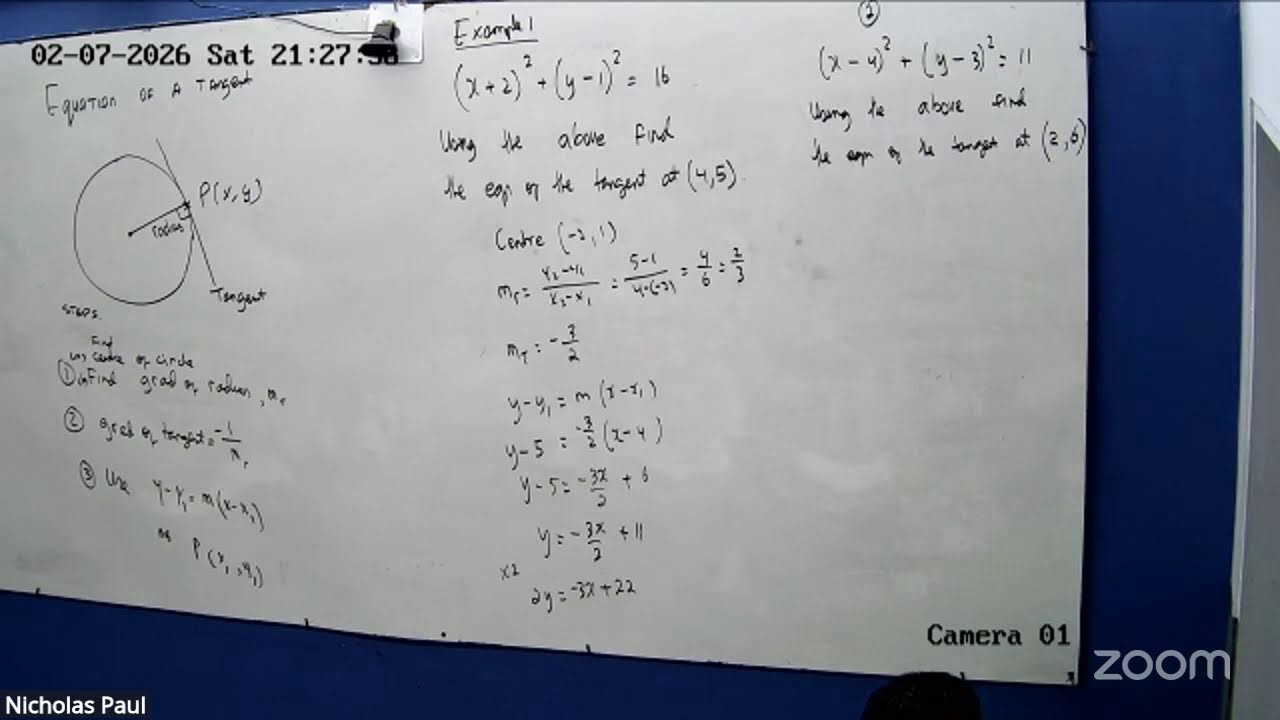 02-07-2026 Sat 21:27:
Equation of A Tangent
P(x,y)
radius
Tangent
STEPS
Find
centre of circle
① Find grad of radius, mr
② grad of tangent = -1/mr
③ Use y-y₁ = m(x-x₁)
P(x₁, y₁)
Example 1
(x+2)² + (y-1)² = 16
Using the above find
the eqn of the tangent at (4,5).
Centre (-2,1)
mr = (y₂-y₁)/(x₂-x₁) = (5-1)/(4-(-2)) = 4/6 = 2/3
mT = -3/2
y-y₁ = m(x-x₁)
y-5 = -3/2(x-4)
y-5 = -3x/2 + 6
y = -3x/2 + 11
x2
2y = -3x+22
②
(x-4)² + (y-3)² = 11
Using the above find
the eqn of the tangent at (2,6)
Camera 01
zoom
Nicholas Paul